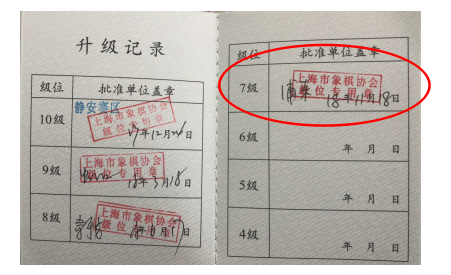 升级记录
级位 批准单位盖章
10级 静安赛区
上海市象棋协会
级位专用章
17年12月24日
9级 上海市象棋协会
级位专用章
18年3月18日
8级 上海市象棋协会
级位专用章
年10月17日
级位 批准单位盖章
7级 上海市象棋协会
级位专用章
18年11月18日
6级 年 月 日
5级 年 月 日
4级 年 月 日